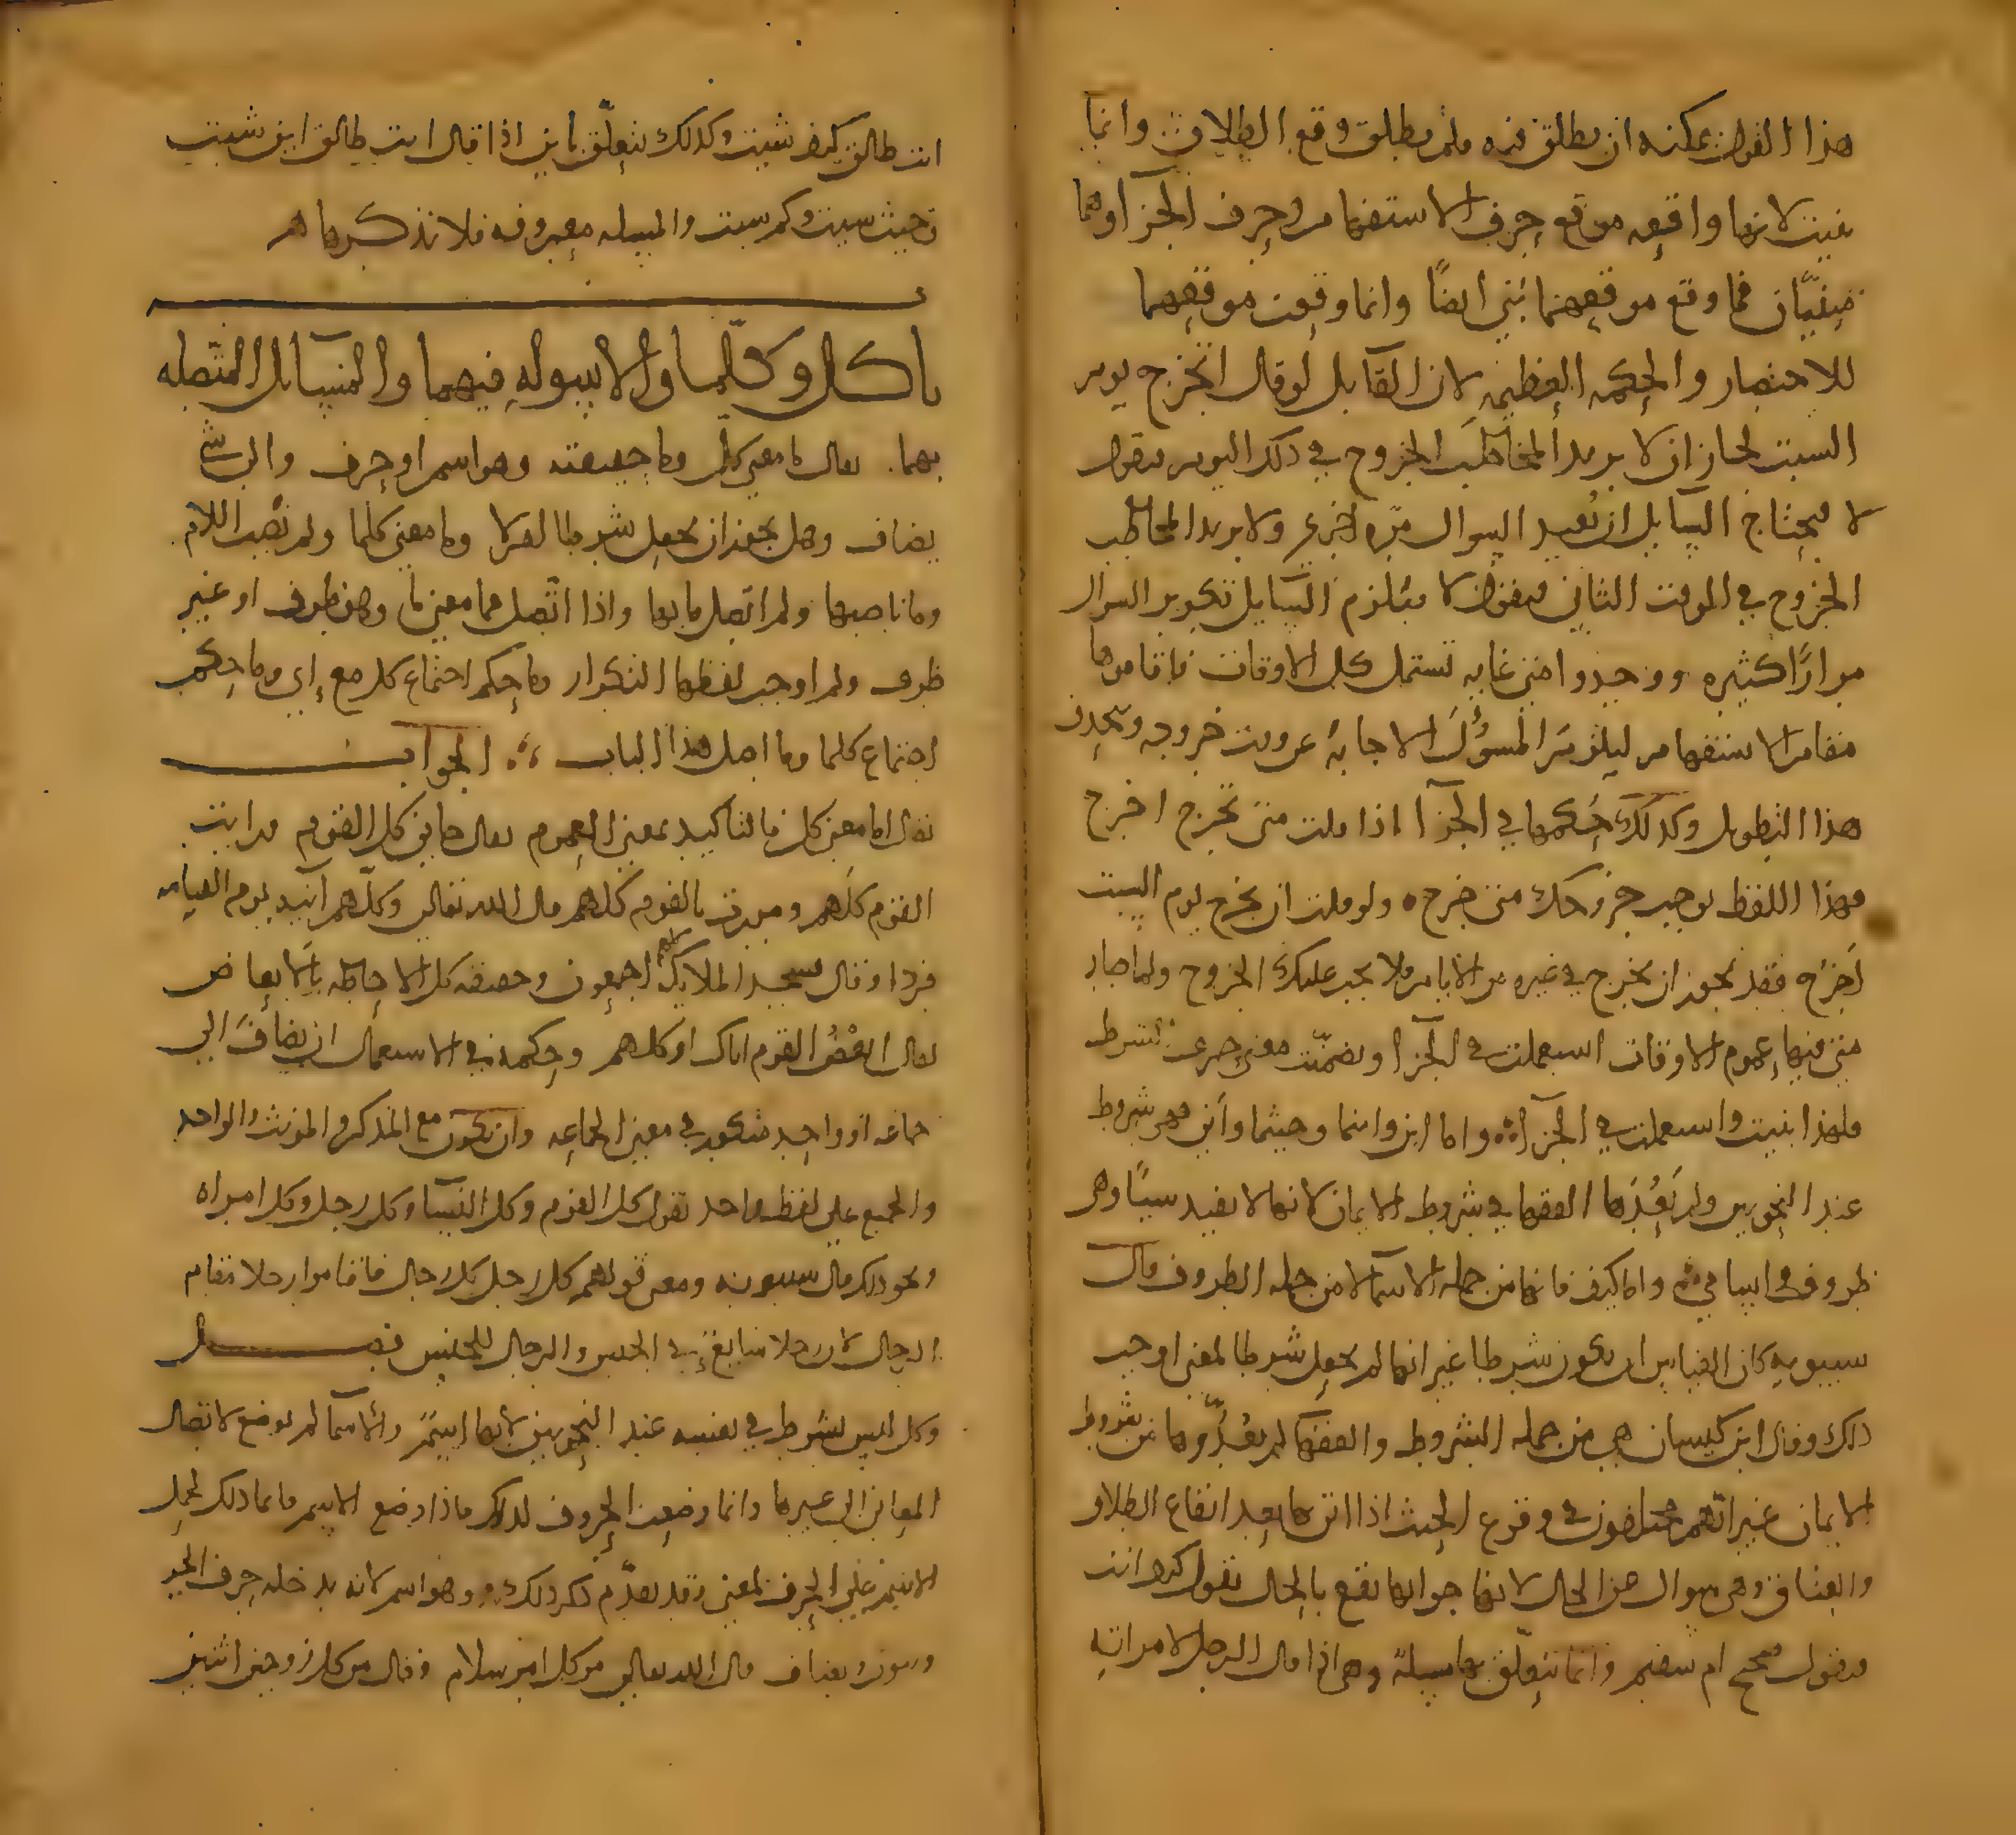 هذا القول يمكنه ان يطلق فيه ولم يطلق وقع الطلاق وانما
بنيت لانها واقعه موقع حرف الاستفهام وحرف الجزآ وهما
مبنيّان فما وقع موقعهما بُني ايضًا وانما وقعت موقعهما
للاختصار والحكمه العظيمه لان القآيل لو قال اتخرج يوم
السبت لجاز ان لا يريد المخاطَب الخروج في ذلك اليوم فيقول
لا فيحتاج السآيل ان يُعيد السوال مرّه اخرى ولا يريد المخاطب
الخروج في الوقت الثاني فيقول لا فيلزم السآيل تكرير السوال
مرارًا كثيره ووجدوا متى غايه تشتمل على كل الاوقات فاقاموها
مقام الاستفهام ليلزم المسؤُل الاجابهُ عن وقت خروجه ويحذف
هذا التطويل وكذلك حُكمها في الجزآ اذا قلت متى تخرج اخرج
فهذا اللفظ يوجب خروجك متى خرج ولو قلت ان تخرج يوم السبت
اَخرُج فقد يجوز ان يخرج في غيره من الايام فلا يجب عليك الخروج ولما صار
متى فيها عموم الاوقات استعملت في الجزآ وتضمّنت معنى حرف الشرط
فلهذا بنيت واستعملت في الجزآ واما اين واينما وحيثما وأنّى فهي شروط
عند النحويين ولم يَعُدّها الفقها في شروط الايمان لانها لا تفيد شيئًا وهي
ظروف واما كيف فانها من جمله الاسمآ لا من جمله الظروف قال
سيبويه كان القياس ان يكون شرطا غير انها لم يجعل شرطا لمعنى اوجب
ذلك وقال ابن كيسان هي من جمله الشروط والفقهآ لم يعُدّوها من شروط
الايمان غير انّهم مختلفون في وقوع الحنث اذا اتى بها بعد ايقاع الطلاق
والعتاق وهي سوال عن الحال لانها جوابها يقع بالحال تقول كيف انت
فيقول صحيح ام سقيم وانما تتعلّق بها مسيلة وهي اذا قال الرجل لامراته
انت طالق كيف شيت وكذلك يتعلّق باين اذا قال انت طالق اين شيت
وحيث شيت وكم شيت والمسيله معروفه فلا نذكرها هـ
باب كل وكلّما والاسوله فيهما والمسآيل المتصله
بهما يقال ما معنى كلّ وما حقيقته وهو اسم او حرف والى اي شي
يضاف وهل يجوز ان يجعل شرطا ام لا وما معنى كلما ولم نُصبت اللام
وما ناصبها ولم اتّصل ما بها واذا اتّصل بها ما معنى ما وهل ظرف او غير
ظرف ولم اوجب لفظها التكرار وما حكم اجتماع كل مع اي وما حكم
اجتماع كلما وما اصل هذا الباب الجواب
يقال اما معنى كل فالتاكيد بمعنى العموم يقال جاني كل القوم ورايت
القوم كلهم ومررت بالقوم كلهم قال الله تعالى وكلّهم آتيه يوم القيامه
فردا وقال فسجد الملايكه كلهم اجمعون وحقيقه كل الاحاطه بالابعاض
يقال ابعضُ القوم اتاك او كلهم وحكمه في الاستعمال ان يضافَ الى
جماعه او واحد منكور في معنى الجماعه وان يكون مع المذكر والمونث والواحد
والجمع على لفظ واحد تقول كل القوم وكل النسآ وكل رجل وكل امراه
ونحو ذلك قال سيبويه ومعنى قولهم كل رجل كل رجال فاقاموا رجلا مقام
الرجال لان رجلا شايع في الجنس والرجال للجنس فصل
وكل ليس بشرط في نفسه عند النحويين لانها اسم والاسمآ لم توضع لايصال
المعاني الى غيرها وانما وضعت الحروف لذلك فاذا وضع الاسم فانما ذلك لحمل
الاسم على الحرف لمعنى وقد تقدّم ذكر ذلك وهو اسم لانه يدخله حرف الجر
وينون ويضاف قال الله تعالى من كل امر سلام وقال من كل زوجين اثنين